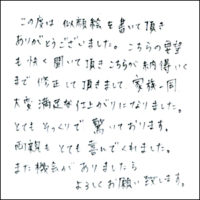 この度は似顔絵を書いて頂き
ありがとうございました。こちらの要望
も快く聞いて頂きこちらが納得いく
まで修正して頂きまして家族一同
大変満足な仕上がりになりました。
とてもそっくりで驚いております。
両親もとても喜んでくれました。
また機会がありましたら
よろしくお願い致します。